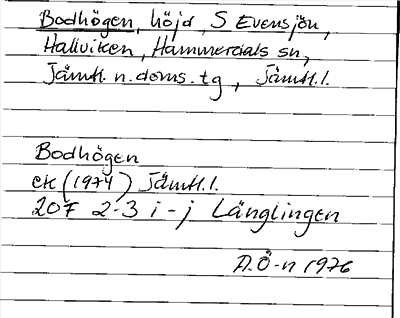 Bodhögen, höjd, S Evensjön,
Hallviken, Hammerdals sn,
Jämtl. n. doms. tg, Jämtl. l.
Bodhögen
ek (1974) Jämtl. l.
20F 2-3 i-j Länglingen
A.Ö-n 1976